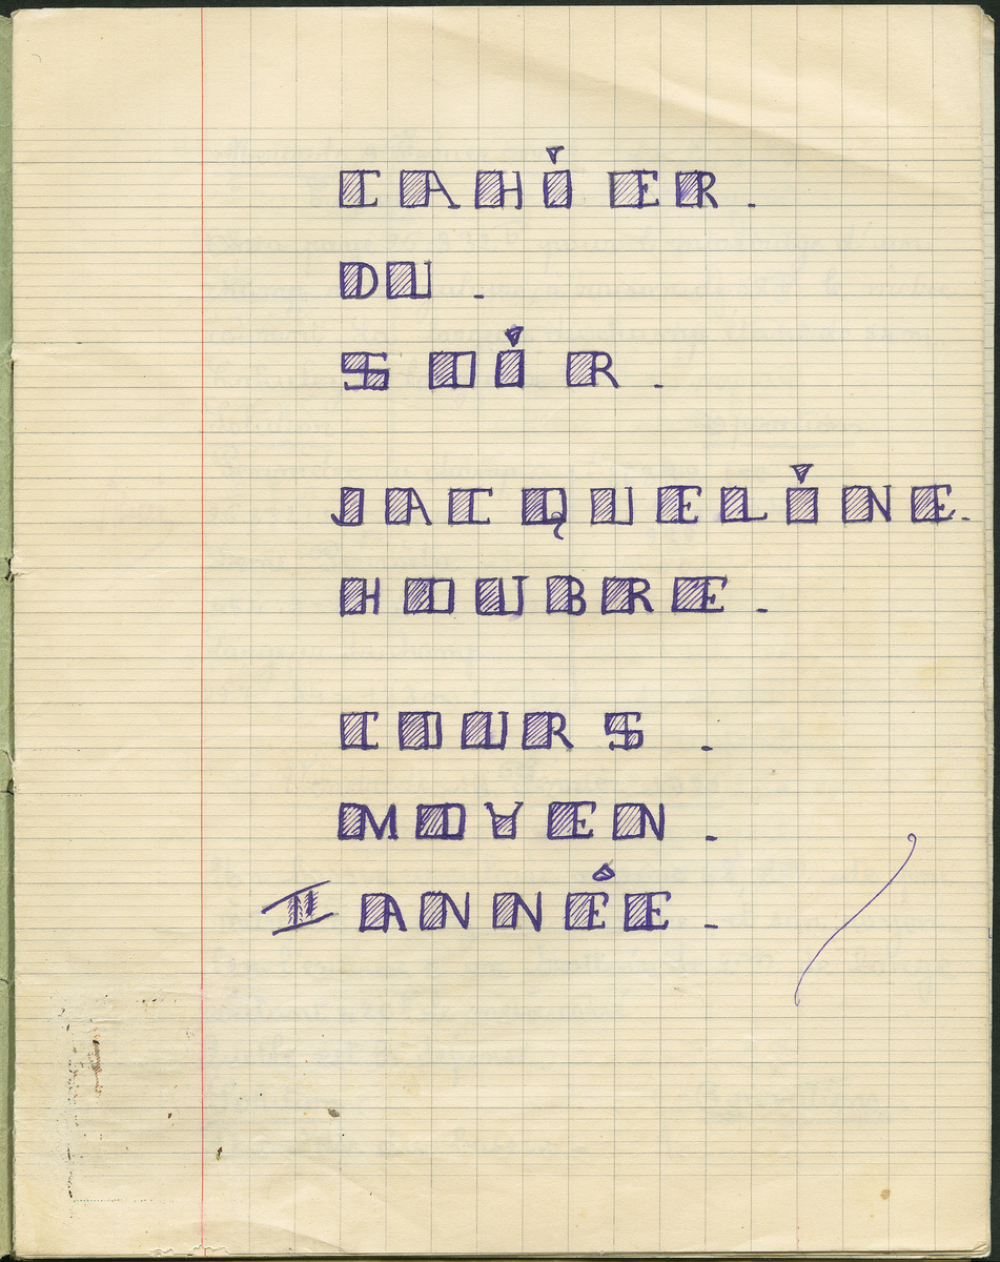 CAHIER.
DU.
SOIR.
JACQUELINE.
HOUBRE.
COURS.
MOYEN.
II ANNÉE.